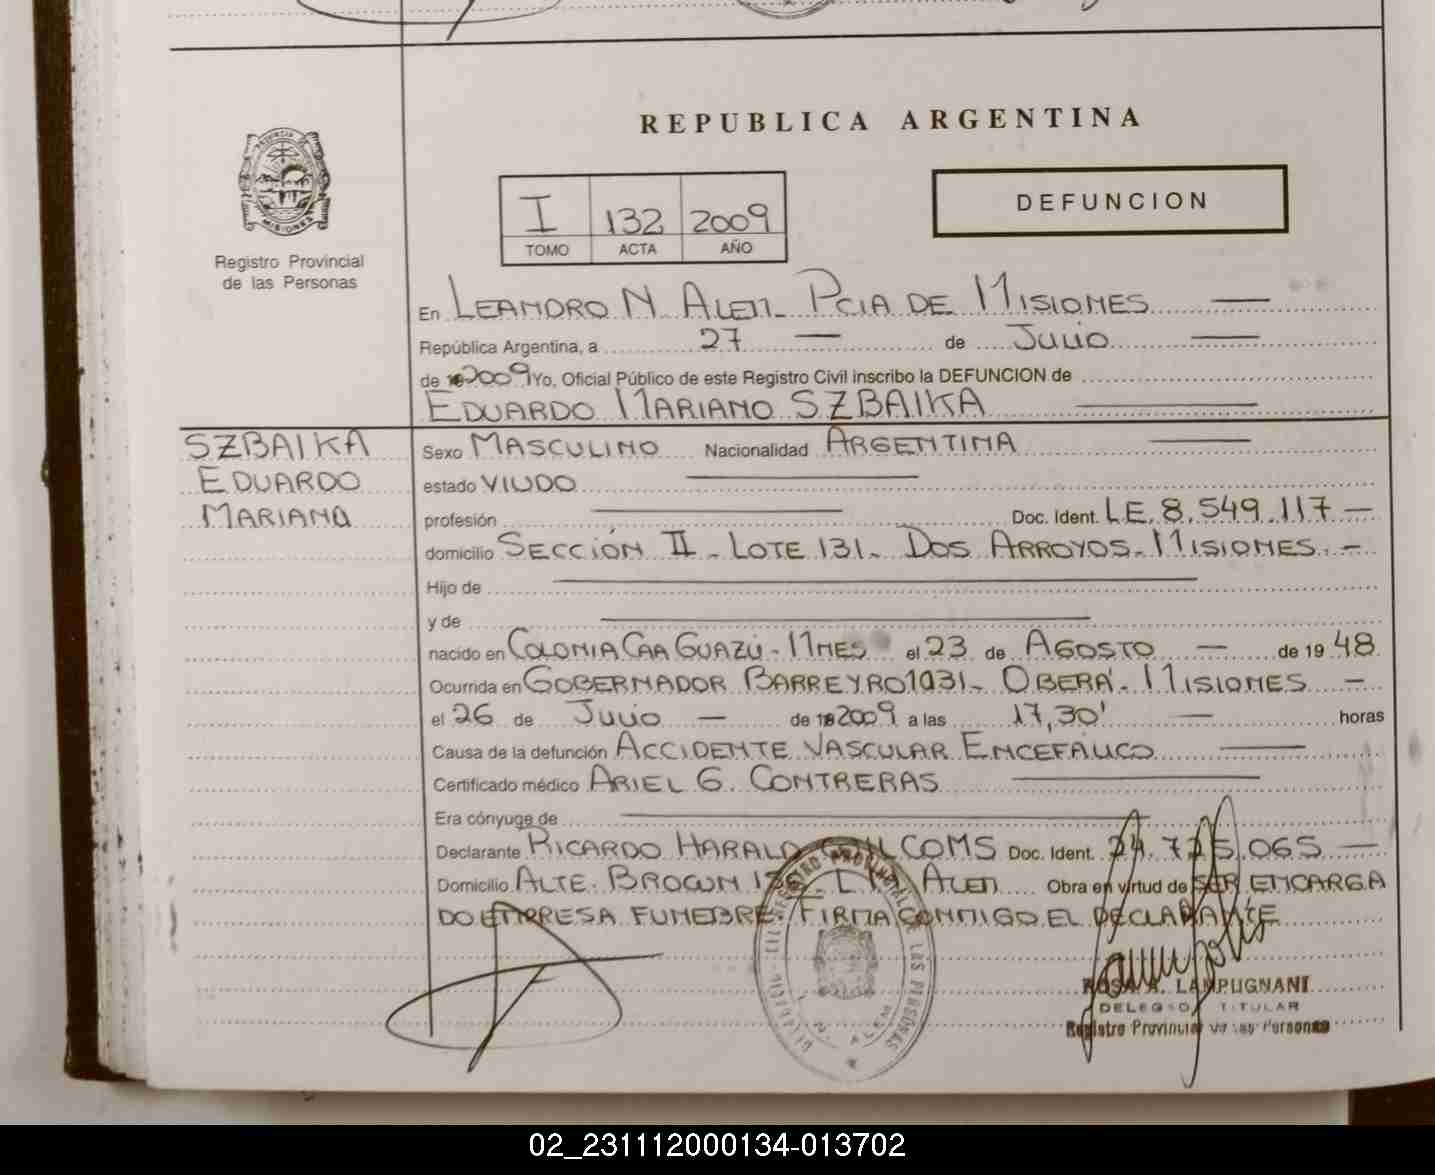 REPUBLICA ARGENTINA
DEFUNCION
I 132 2009
TOMO ACTA AÑO
Registro Provincial
de las Personas
En LEANDRO N ALEN_ PCIA DE MISIONES
República Argentina, a 27 de JULIO
de 2009 Yo, Oficial Público de este Registro Civil inscribo la DEFUNCION de
EDUARDO MARIANO SZBAIKA
SZBAIKA
EDUARDO
MARIANO
Sexo MASCULINO Nacionalidad ARGENTINA
estado VIUDO
profesión Doc. Ident. LE. 8.549.117
domicilio SECCIÓN II - LOTE 131 - DOS ARROYOS - MISIONES.
Hijo de
y de
nacido en COLONIA CAA GUAZÚ - MNES el 23 de AGOSTO de 19 48
Ocurrida en GOBERNADOR BARREYRO 1031 - OBERÁ - MISIONES
el 26 de JULIO de 2009 a las 17,30' horas
Causa de la defunción ACCIDENTE VASCULAR ENCEFÁLICO
Certificado médico ARIEL G. CONTRERAS
Era cónyuge de
Declarante RICARDO HARALD Doc. Ident. 24.725.065
Domicilio ALTE. BROWN ALEN Obra en virtud de SER ENCARGA
DO EMPRESA FUNEBRE. FIRMA CONMIGO EL DECLARANTE
ROSA A. LAMPUGNANI
DELEGADO TITULAR
Registro Provincial de las Personas
02_231112000134-013702